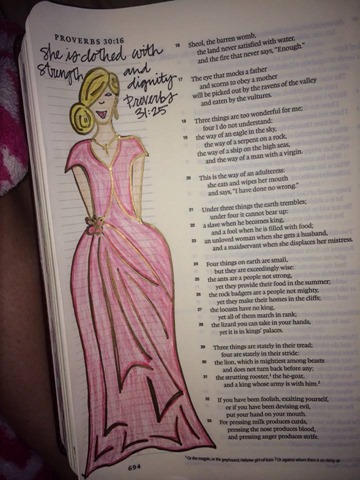 PROVERBS 30:16
She is clothed with
strength and
dignity.
Proverbs
31:25
16 Sheol, the barren womb,
the land never satisfied with water,
and the fire that never says, "Enough."
17 The eye that mocks a father
and scorns to obey a mother
will be picked out by the ravens of the valley
and eaten by the vultures.
18 Three things are too wonderful for me;
four I do not understand:
19 the way of an eagle in the sky,
the way of a serpent on a rock,
the way of a ship on the high seas,
and the way of a man with a virgin.
20 This is the way of an adulteress:
she eats and wipes her mouth
and says, "I have done no wrong."
21 Under three things the earth trembles;
under four it cannot bear up:
22 a slave when he becomes king,
and a fool when he is filled with food;
23 an unloved woman when she gets a husband,
and a maidservant when she displaces her mistress.
24 Four things on earth are small,
but they are exceedingly wise:
25 the ants are a people not strong,
yet they provide their food in the summer;
26 the rock badgers are a people not mighty,
yet they make their homes in the cliffs;
27 the locusts have no king,
yet all of them march in rank;
28 the lizard you can take in your hands,
yet it is in kings' palaces.
29 Three things are stately in their tread;
four are stately in their stride:
30 the lion, which is mightiest among beasts
and does not turn back before any;
31 the strutting rooster,¹ the he-goat,
and a king whose army is with him.²
32 If you have been foolish, exalting yourself,
or if you have been devising evil,
put your hand on your mouth.
33 For pressing milk produces curds,
pressing the nose produces blood,
and pressing anger produces strife.
694
¹ Or the magpie, or the greyhound; Hebrew girt-of-loins ² Or against whom there is no rising up